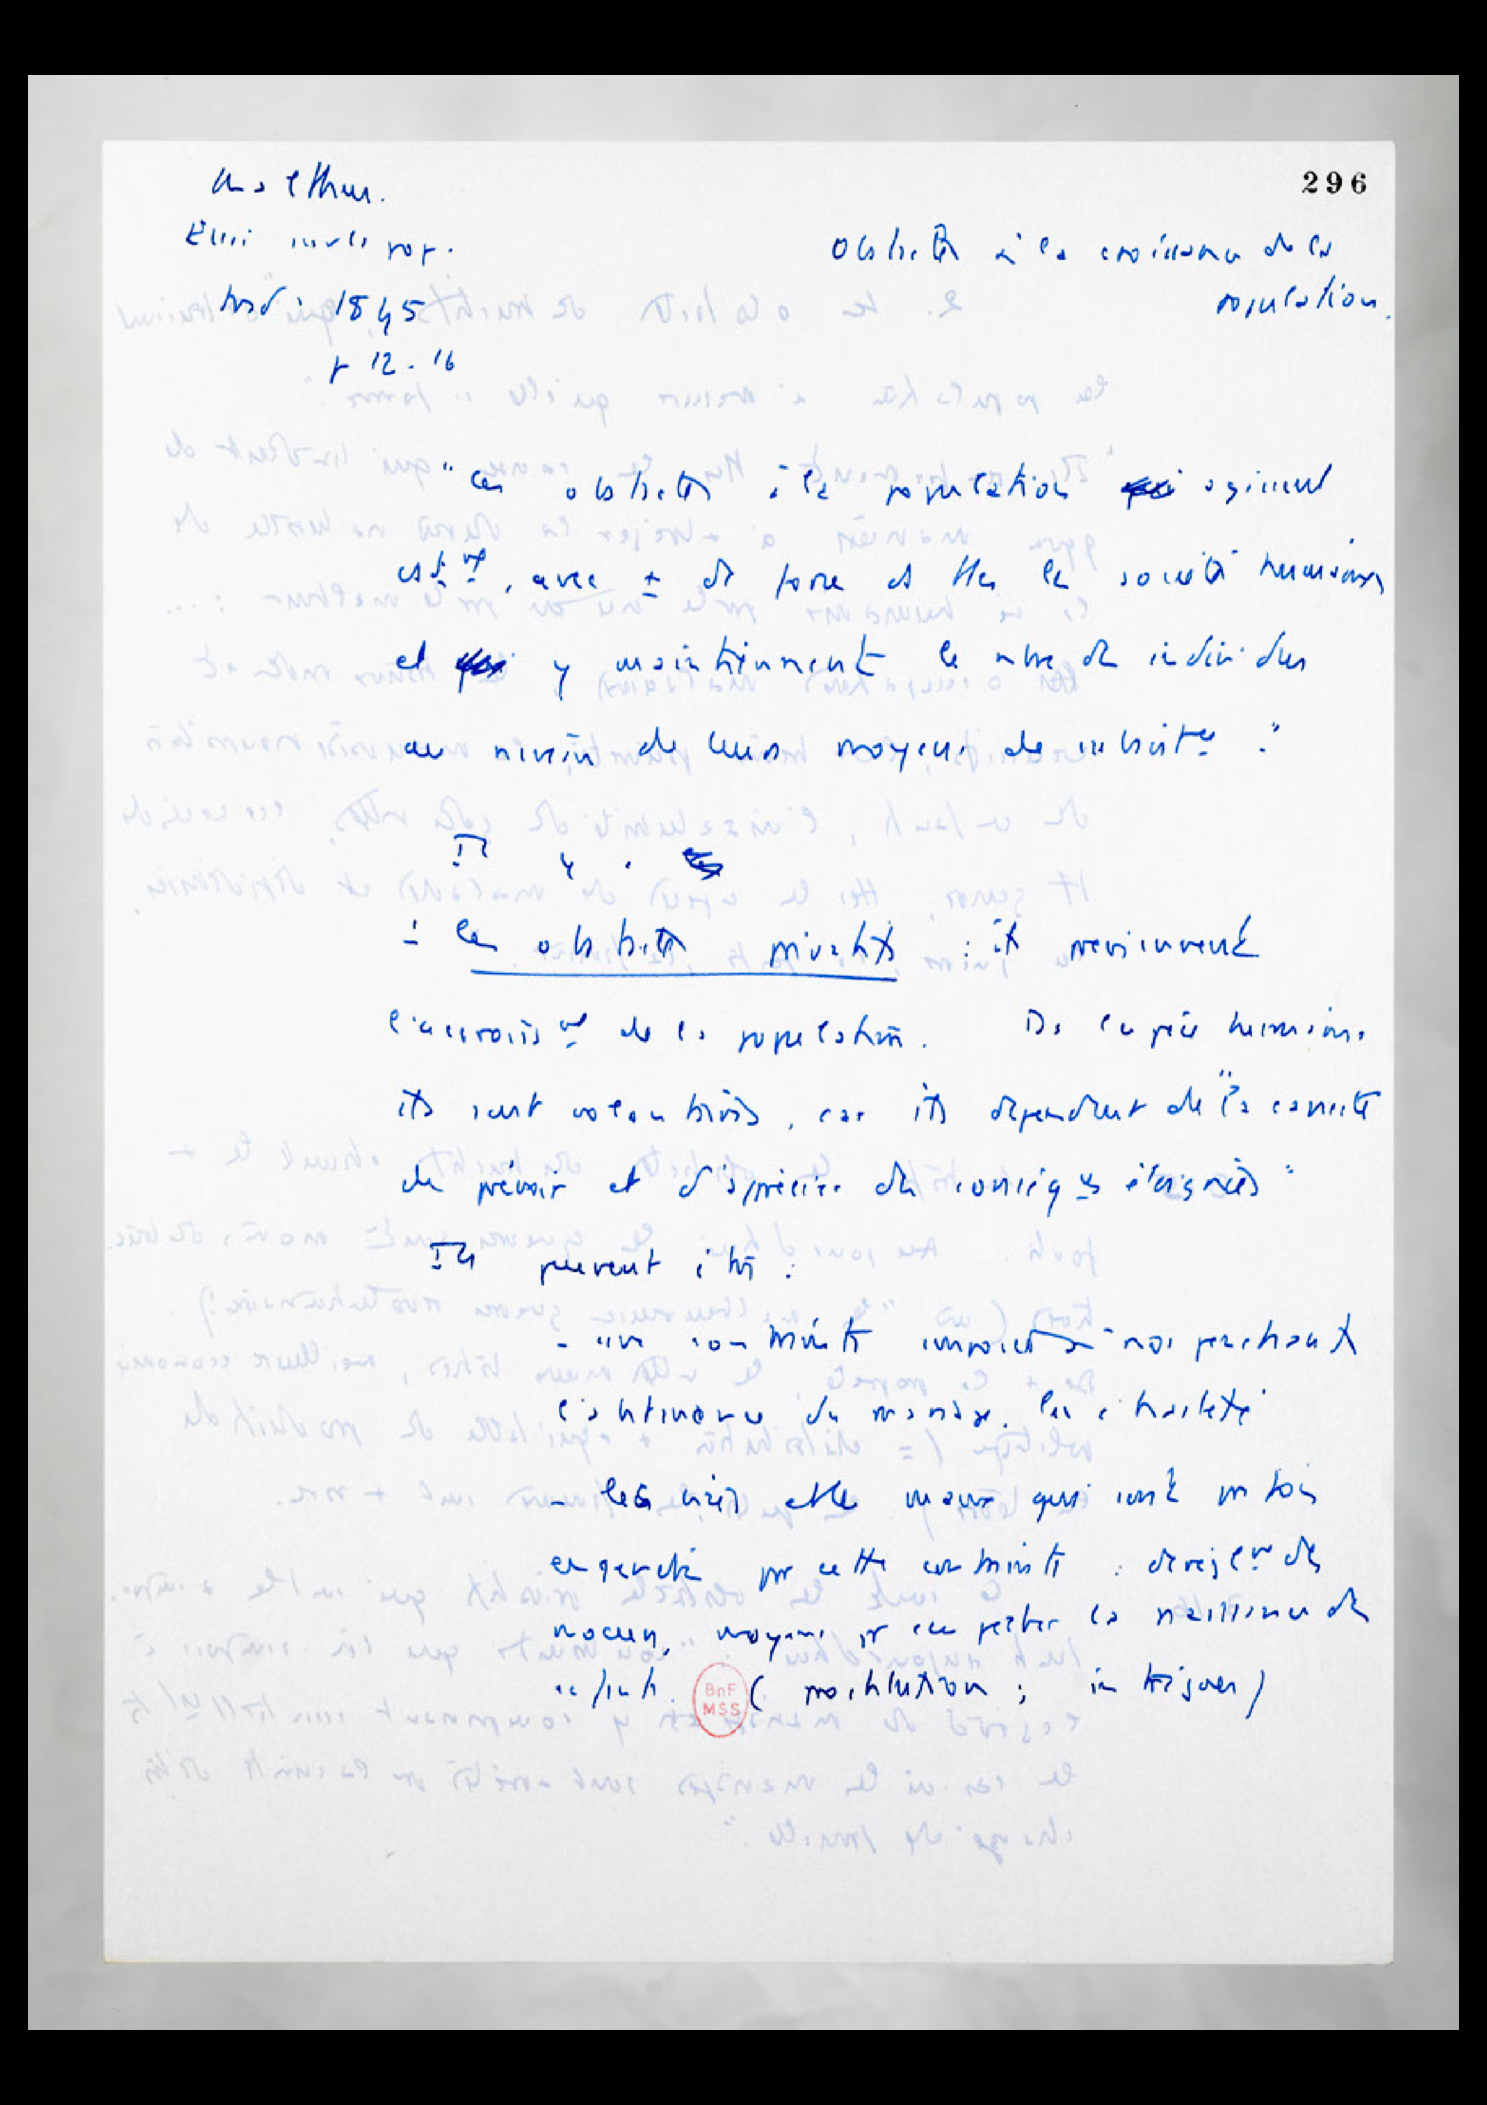 296
Malthus.
Essai sur la pop.
trad. 1845
p 12-16
Obstacles à la croissance de la
population.
"Ces obstacles à la population agissent
const.mt, avec ± de force ds ttes les sociétés humaines
et y maintiennent le nbre des individus
au niveau de leurs moyens de subsistce."
Il y a
1 les obstacles privatifs : ils préviennent
l'accroissmt de la population. Ds l'espèce humaine
ils sont volontaires, car ils dépendent de "la capacité
de prévoir et d'apprécier des conséqces éloignées"
Ils peuvent être :
- une contrainte imposée à nos penchants
l'abstinence du mariage, la chasteté
- les vices et les maux qui sont parfois
engendrés par cette contrainte : dérèglmt des
moeurs, moyens pr empêcher la naissance des
enfants. (prostitution ; intrigues)
BnF
MSS